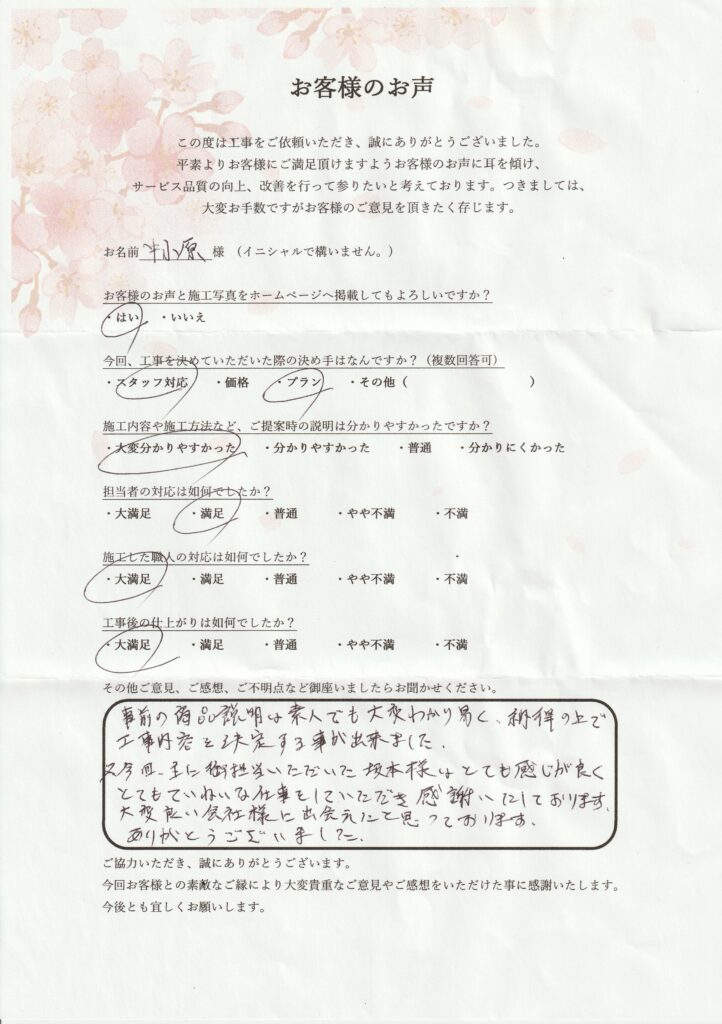 お客様のお声
この度は工事をご依頼いただき、誠にありがとうございました。
平素よりお客様にご満足頂けますようお客様のお声に耳を傾け、
サービス品質の向上、改善を行って参りたいと考えております。つきましては、
大変お手数ですがお客様のご意見を頂きたく存じます。
お名前 原 様 （イニシャルで構いません。）
お客様のお声と施工写真をホームページへ掲載してもよろしいですか？
・はい ・いいえ
今回、工事を決めていただいた際の決め手はなんですか？（複数回答可）
・スタッフ対応 ・価格 ・プラン ・その他（ ）
施工内容や施工方法など、ご提案時の説明は分かりやすかったですか？
・大変分かりやすかった ・分かりやすかった ・普通 ・分かりにくかった
担当者の対応は如何でしたか？
・大満足 ・満足 ・普通 ・やや不満 ・不満
施工した職人の対応は如何でしたか？
・大満足 ・満足 ・普通 ・やや不満 ・不満
工事後の仕上がりは如何でしたか？
・大満足 ・満足 ・普通 ・やや不満 ・不満
その他ご意見、ご感想、ご不明点など御座いましたらお聞かせください。
事前の商品説明は素人でも大変わかり易く、納得の上で
工事内容を決定する事が出来ました。
又今回、主に御担当いただいた坂本様はとても感じが良く
とてもていねいな仕事をしていただき感謝いたしております。
大変良い会社様に出会えたと思っております。
ありがとうございました。
ご協力いただき、誠にありがとうございます。
今回お客様との素敵なご縁により大変貴重なご意見やご感想をいただけた事に感謝いたします。
今後とも宜しくお願いします。